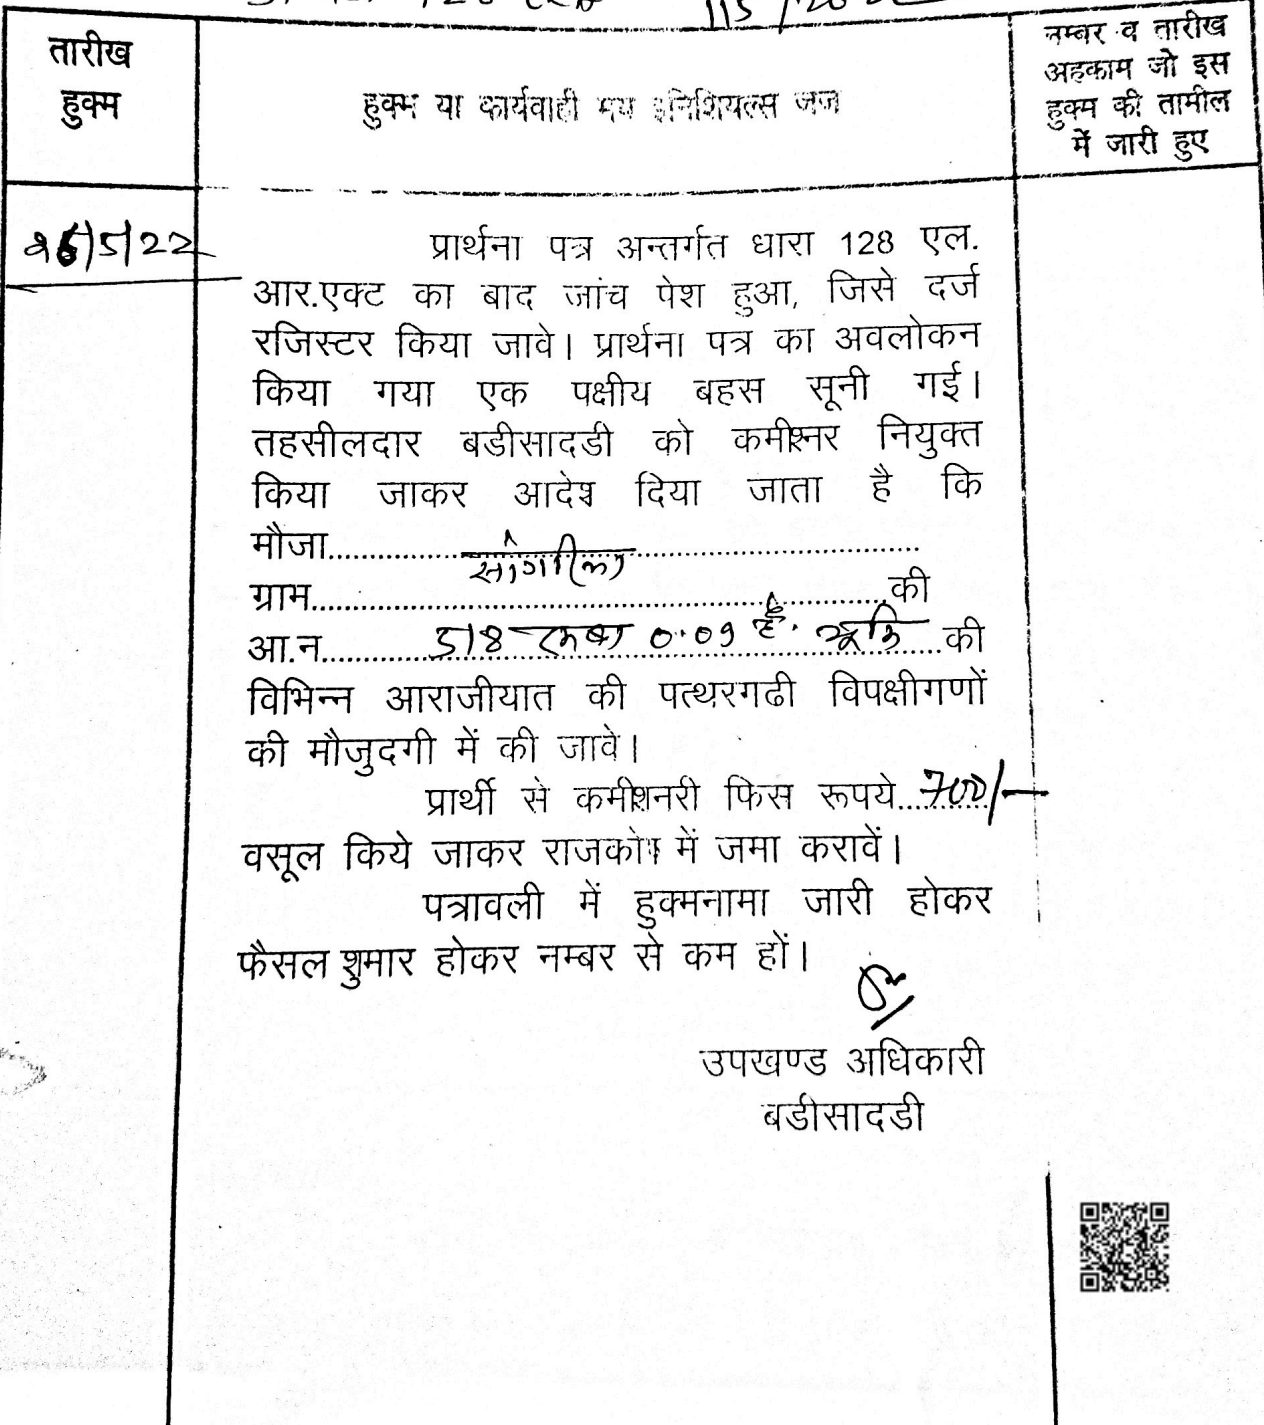 115/20
तारीख
हुक्म
हुक्म या कार्यवाही मय इनिशियल्स जज
नम्बर व तारीख
अहकाम जो इस
हुक्म की तामील
में जारी हुए
26/5/22
प्रार्थना पत्र अन्तर्गत धारा 128 एल.
आर.एक्ट का बाद जांच पेश हुआ, जिसे दर्ज
रजिस्टर किया जावे। प्रार्थना पत्र का अवलोकन
किया गया एक पक्षीय बहस सूनी गई।
तहसीलदार बडीसादडी को कमीश्नर नियुक्त
किया जाकर आदेश दिया जाता है कि
मौजा.....................................................
ग्राम.....................................................की
आ.न......518 रकबा 0.09 है. भूमि.....की
विभिन्न आराजीयात की पत्थरगढी विपक्षीगणों
की मौजुदगी में की जावे।
प्रार्थी से कमीशनरी फिस रूपये..700/-
वसूल किये जाकर राजकोष में जमा करावें।
पत्रावली में हुक्मनामा जारी होकर
फैसल शुमार होकर नम्बर से कम हों।
उपखण्ड अधिकारी
बडीसादडी